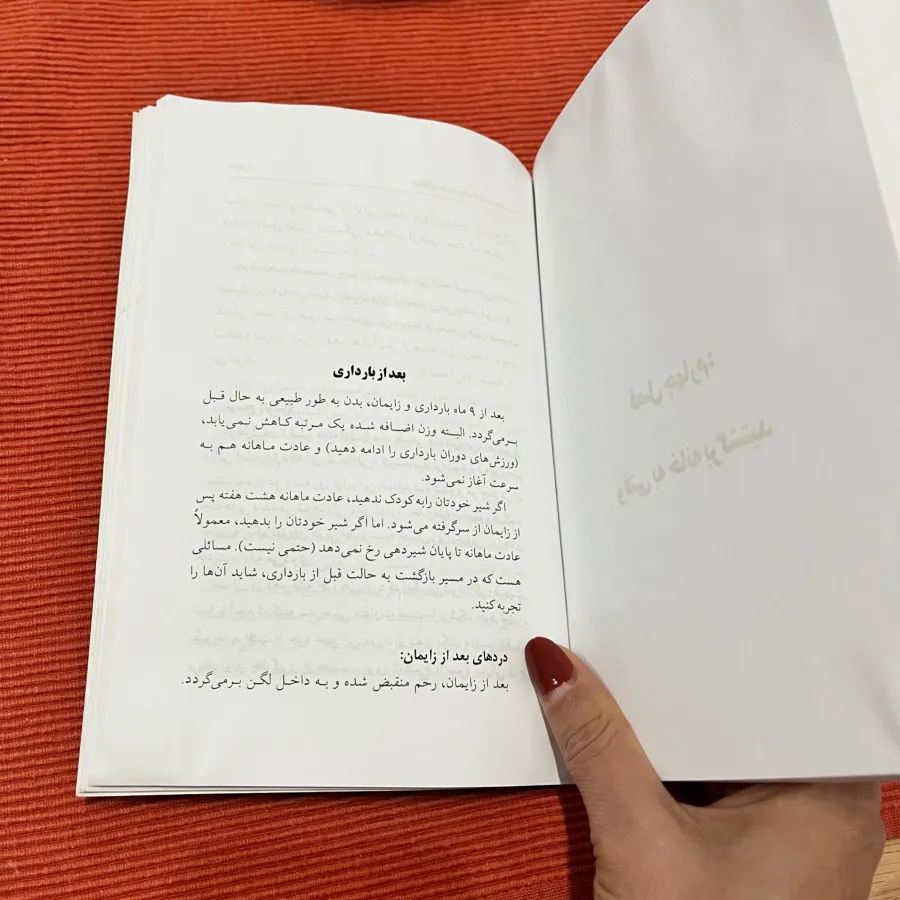 بعد از بارداری
بعد از ۹ ماه بارداری و زایمان، بدن به طور طبیعی به حال قبل
برمی‌گردد. البته وزن اضافه شده یک مرتبه کاهش نمی‌یابد،
(ورزش‌های دوران بارداری را ادامه دهید) و عادت ماهانه هم به
سرعت آغاز نمی‌شود.
اگر شیر خودتان رابه کودک ندهید، عادت ماهانه هشت هفته پس
از زایمان از سرگرفته می‌شود. اما اگر شیر خودتان را بدهید، معمولاً
عادت ماهانه تا پایان شیردهی رخ نمی‌دهد (حتمی نیست). مسائلی
هست که در مسیر بازگشت به حالت قبل از بارداری، شاید آن‌ها را
تجربه کنید.
دردهای بعد از زایمان:
بعد از زایمان، رحم منقبض شده و به داخل لگن برمی‌گردد.
فصل چهارم:
وقتی به خانه برگشتید